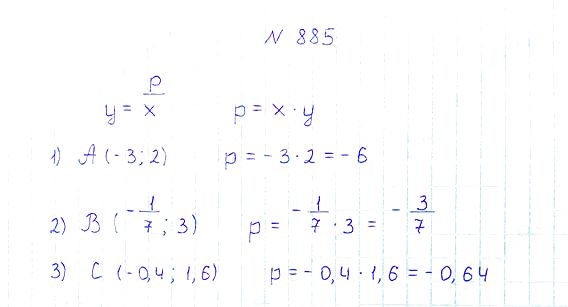 N 885
y = p/x p = x · y
1) A (-3; 2) p = -3 · 2 = -6
2) B (-1/7; 3) p = -1/7 · 3 = -3/7
3) C (-0,4; 1,6) p = -0,4 · 1,6 = -0,64